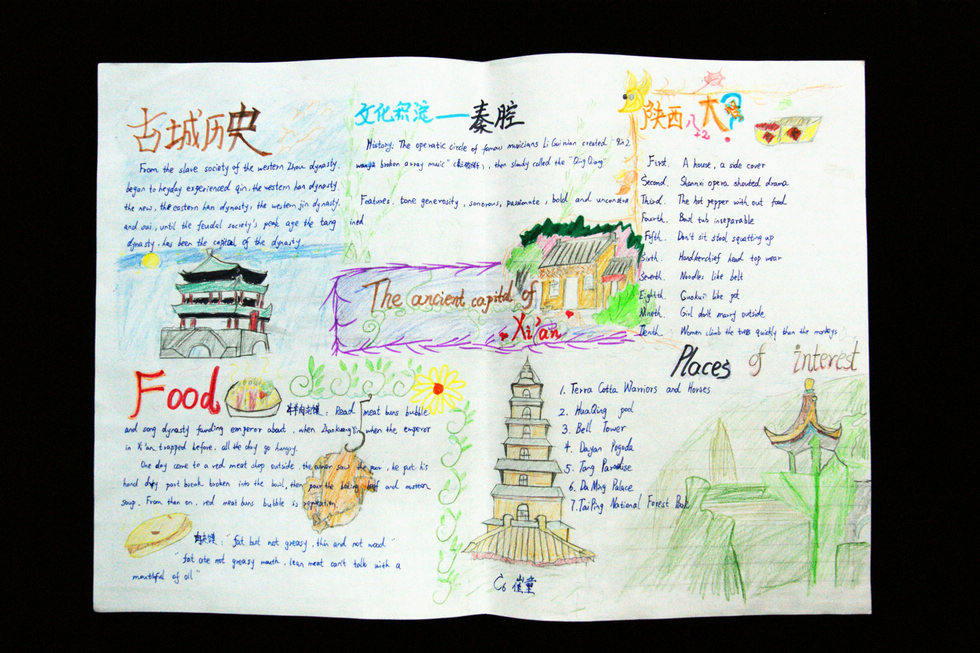 古城历史
From the slave society of the western Zhou dynasty,
began to heyday experienced qin, the western han dynasty,
the new, the eastern han dynasty, the western jin dynasty,
and sui, until the feudal society's peak age the tang
dynasty, has been the capital of the dynasty.
文化积淀——秦腔
History: The operatic circle of famous musicians Li Gui nian created
broken array music" then slowly called the "Qin Qiang"
Features, tone generosity, sonorous, passionate, bold and unconstra
ined.
陕西八大怪
+2
First. A house, a side cover
Second. Shannxi opera shouted drama
Third. The hot pepper with out food
Fourth. Bowl tub inseparable
Fifth. Don't sit stool squatting up
Sixth. Handkerchief head top wear
Seventh. Noodles like belt
Eighth. Guokui like pot
Nineth. Girl don't marry outside
Tenth. Women climb the trees quickly than the monkeys
The ancient capital of
Xi'an
Food
牛羊肉泡馍: Read meat buns bubble
and song dynasty funding emperor about, when Zhaokuangyin when the emperor
in Xi'an trapped before, all the day go hungry.
One day come to a red meat shop outside, the owner saw the poor, he put his
hand dry part break broken into the bowl, then pour the boiling beef and mutton
soup. From then on, red meat buns bubble is
肉夹馍: "fat but not greasy, thin and not wood"
"fat ate not greasy mouth, lean meat can't talk with a
mouthful of oil"
Places of interest
1. Terra Cotta Warriors and Horses
2. HuaQing pool
3. Bell Tower
4. Dayan Pagoda
5. Tang Paradise
6. Da Ming Palace
7. TaiPing National Forest Park
C6 崔童